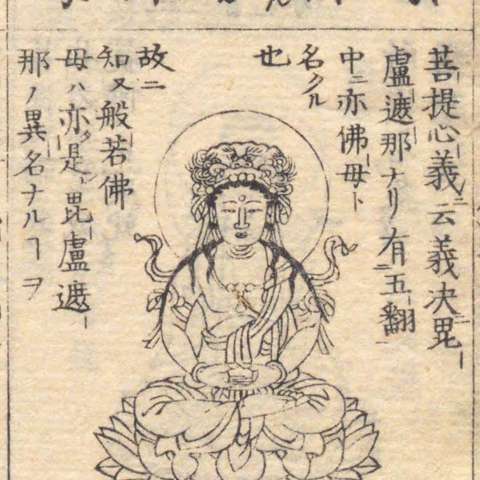 菩提心義ニ云義決毘
盧遮那ナリ有二五翻一
中ニ亦佛母ト
名クル
也
故ニ
知又般若佛
母ハ亦是レ毘盧遮
那ノ異名ナルヿヲ